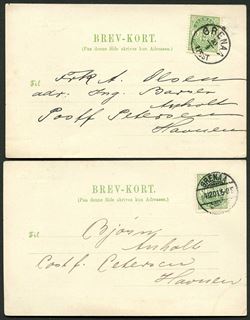 BREV-KORT.
(Paa denne Side skrives kun Adressen.)
GRENAA
Til
Frk A. Olsen
adr. Ing.
Anholt
Postf Petersen
Havnen
BREV-KORT.
(Paa denne Side skrives kun Adressen.)
GRENAA
Til
Bjørn
Anholt
Postf. Petersen
Havnen